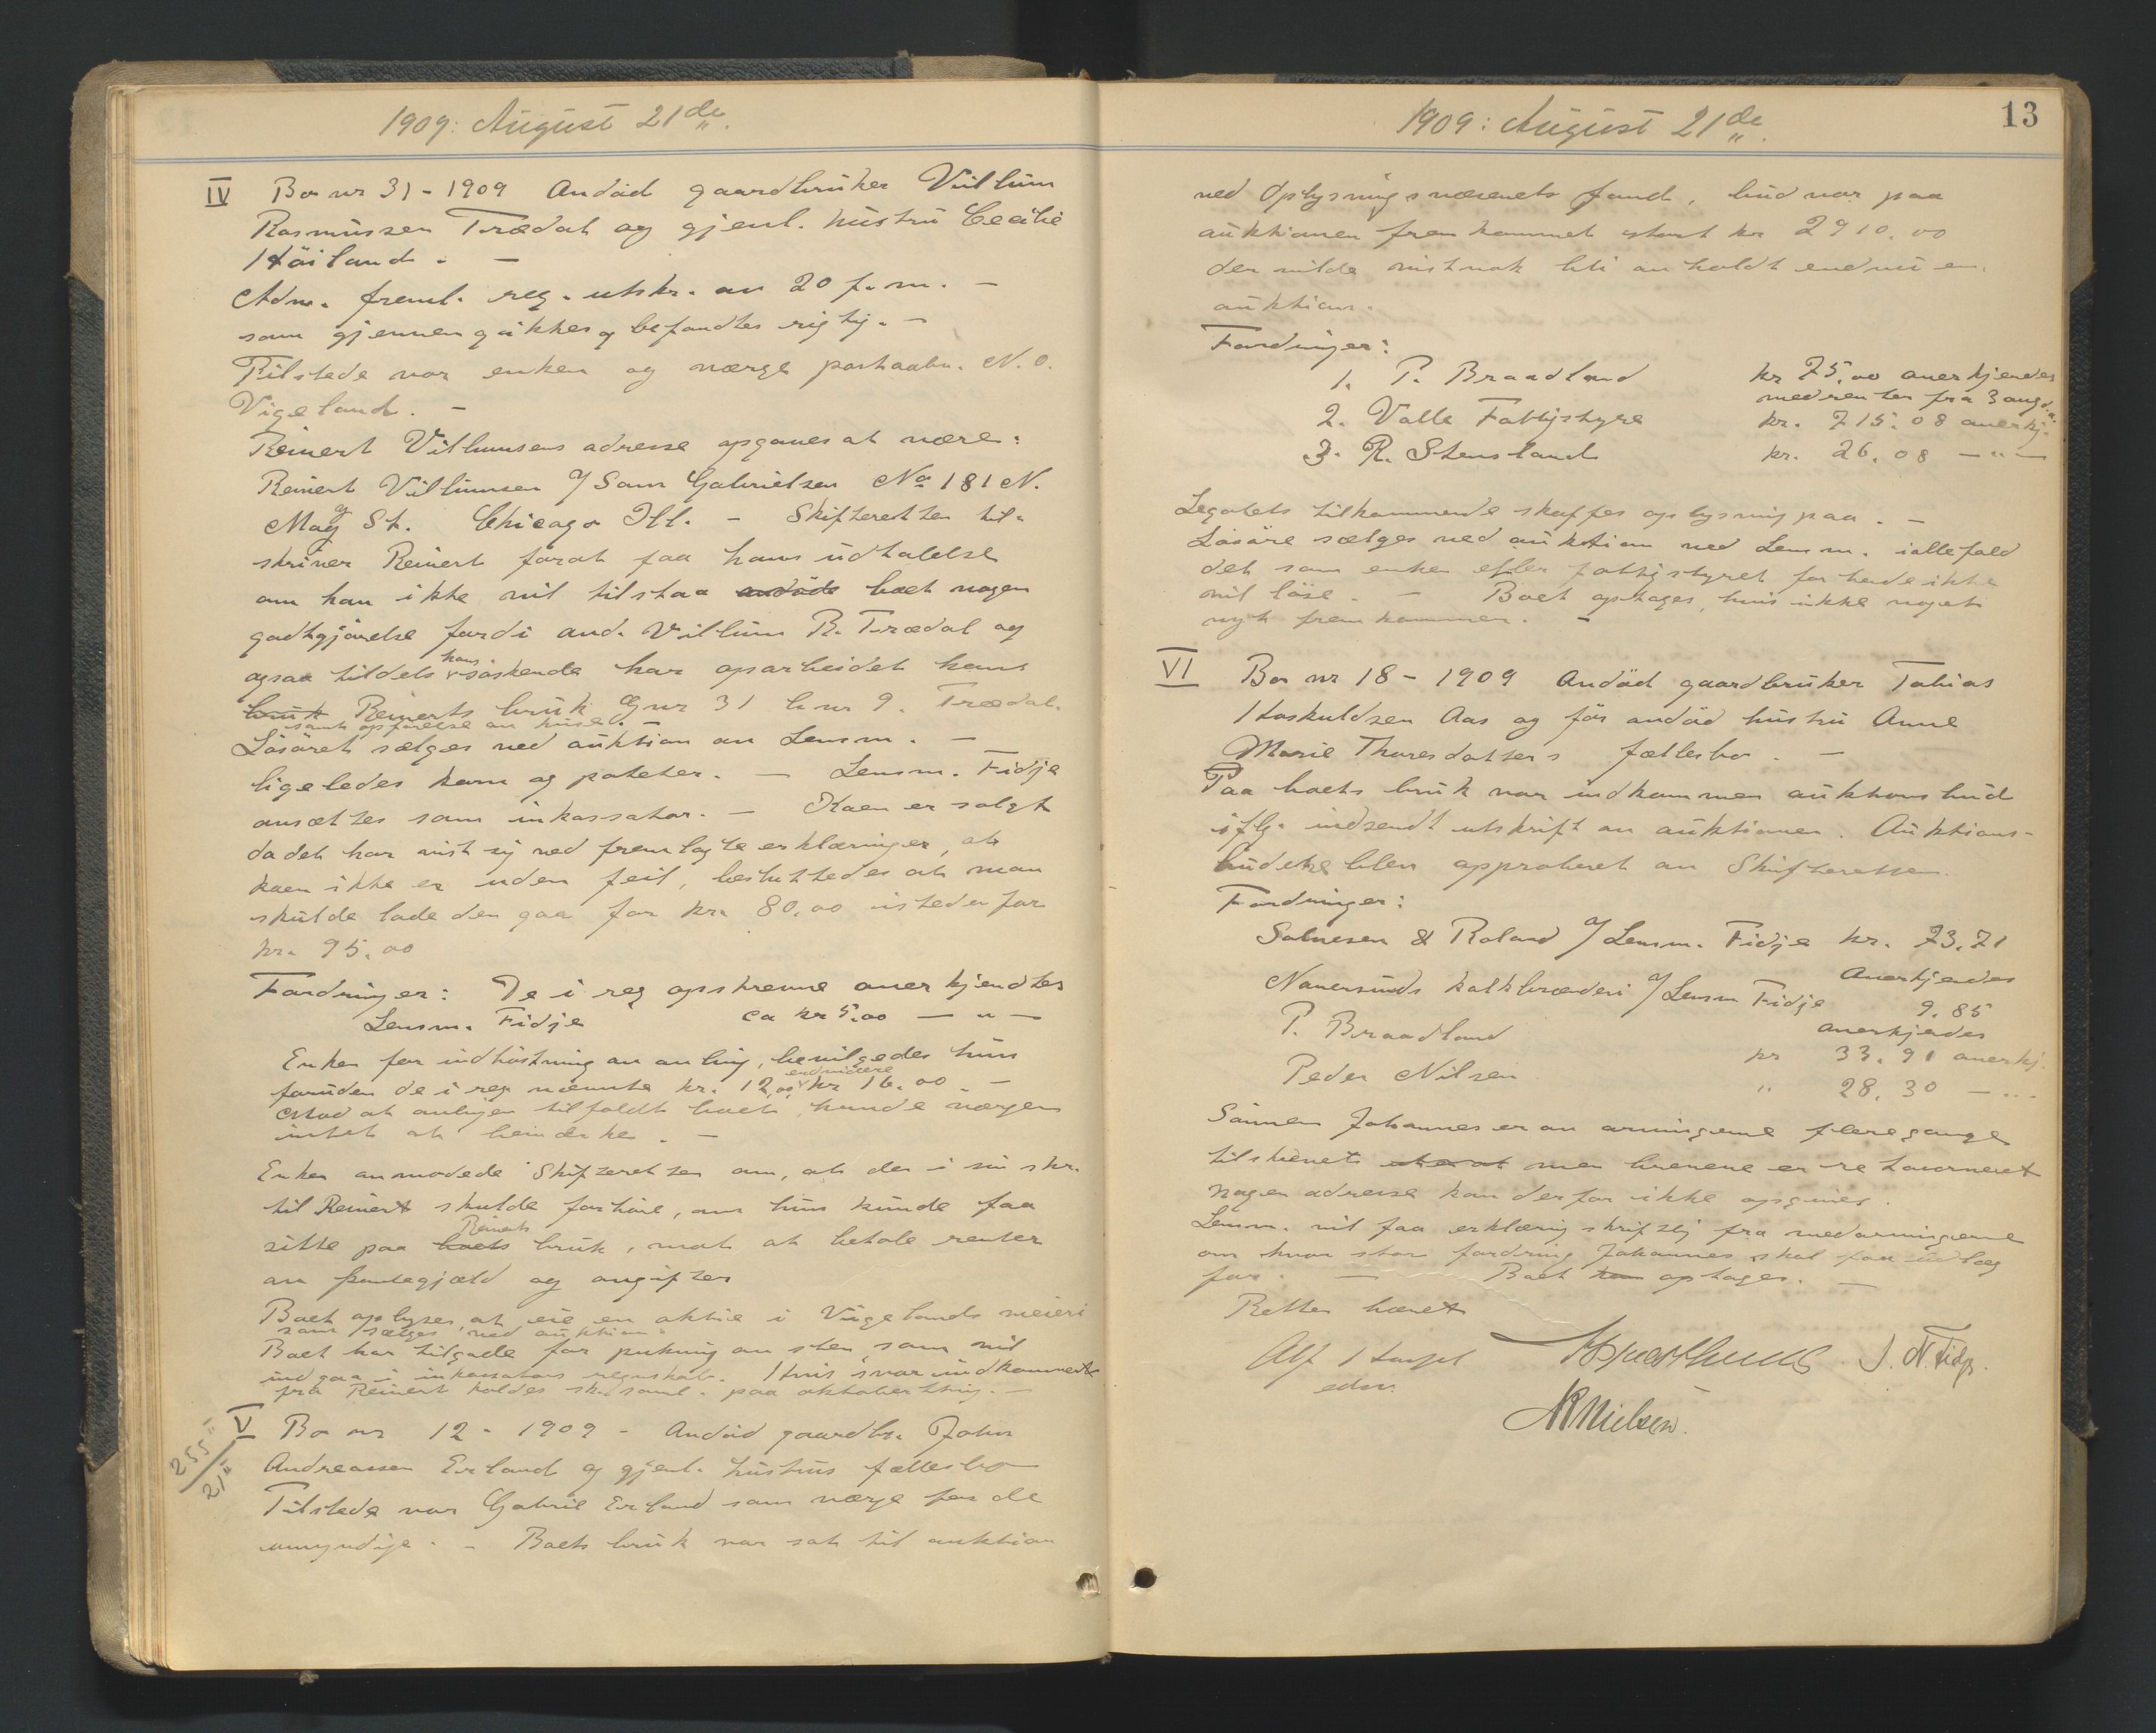 1909: August 21de.
IV Bo nr 31 - 1909 Avdöd gaardbruker Villum
Rasmussen Trædal og gjenl. hustru Cecilie
Höiland. —
Adm. freml. reg. utskr. av 20 f.m. —
som gjennemgikkes og befandtes rigtig. —
Tilstede var enken og værge postaabn. N. O.
Vigeland. —
Reinert Villumsens adresse opgaves at være:
Reinert Villumsen % Sam Gabrielsen No 181 N.
May St. Chicago Ill. — Skifteretten til-
skriver Reinert forat faa hans udtalelse
om han ikke vil tilstaa avdöde boet nogen
godtgjörelse fordi avd. Villum R. Trædal og
ogsaa tildels hans söskende har oparbeidet hans
bruk Reinerts bruk Gnr 31 bnr 9. Trædal.
samt opförelse av huse.
Lösöret sælges ved auktion av Lensm. —
ligeledes korn og poteter. — Lensm. Fidje
ansættes som inkassator. — Koen er solgt
da det har vist sig ved fremlagte erklæringer, at
koen ikke er uden feil, besluttedes at man
skulde lade den gaa for kr. 80,00 istedenfor
kr. 95,00
Fordringer: De i reg opskrevne anerkjendtes
Lensm. Fidje ca kr 5,00 — " —
Enken for indhöstning av avling, bevilgedes hun
foruden de i reg nævnte kr. 12,00, endvidere kr 16.00. —
Mod at avlingen tilfaldt boet, havde værgen
intet at bemerke. —
Enken anmodede Skifteretten om, at den i sin skr.
til Reinert skulde forhöre, om hun kunde faa
sitte paa boets Reinerts bruk, mot at betale renter
av pantegjæld og avgifter
Boet oplyses at eie en aktie i Vigelands meieri
som sælges ved auktion.
Boet har tilgode for pukning av sten, som vil
indgaa i inkassators regnskab. Hvis svar indkommer
fra Reinert holdes sk.saml. paa oktoberthing. —
255"/21"
V Bo nr 12 - 1909 - Avdöd gaardbr. John
Andreassen Erland og gjenl. hustrus fællesbo
Tilstede var Gabriel Erland som værge for de
umyndige. — Boets bruk var sat til auktion
1909: August 21de. 13
ved Oplysningsvæsenets fond, bud var paa
auktionen fremkommet stort kr 2910.00
der vilde vistnok bli avholdt endnu en
auktion.
Fordringer:
1. P. Braadland kr 75,00 anerkjendes
med renter fra 3 aug d.a.
2. Valle Fattigstyre kr. 715.08 anerkj.
3. R. Stensland kr. 26.08 — " —
Legatets tilkommende skaffes oplysning paa. —
Lösöre sælges ved auktion ved Lensm. ialfefald
det som enken efter fattigstyret forhade ikke
vil löse. — Boet optages, hvis ikke noget
nyt fremkommer. —
VI Bo nr 18 - 1909 Avdöd gaardbruker Tobias
Hoskuldsen Aas og för avdöd hustru Anne
Marie Thoresdatters fællesbo. —
Paa boets bruk var indkommen auktionsbud
iflg. indsendt utskrift av auktionen. Auktions-
budene blev approberet av Skifteretten.
Fordringer:
Salvesen & Roland % Lensm. Fidje kr. 73.71
Anerkjendes
Naversunds kalkbrænderi % Lensm Fidje 9,85
anerkjedes
P. Braadland kr 33.91 anerkj.
Peder Nilsen " 28.30 — " —
Sönnen Johannes er av arvingerne fleregange
tilskrevet men brevene er retourneret
Nogen adresse kan derfor ikke opgives.
Lensm. vil faa erklæring skriftlig fra medarvingerne
om hvor stor fordring Johannes skal faa udlæg
for. — Boet optages. —
Retten hævet
Alf
edsv.
J. N. Fidje.
NRNielsen.